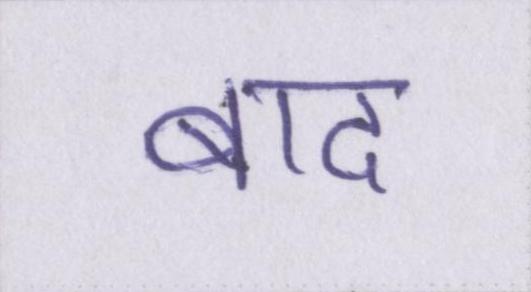 बाद